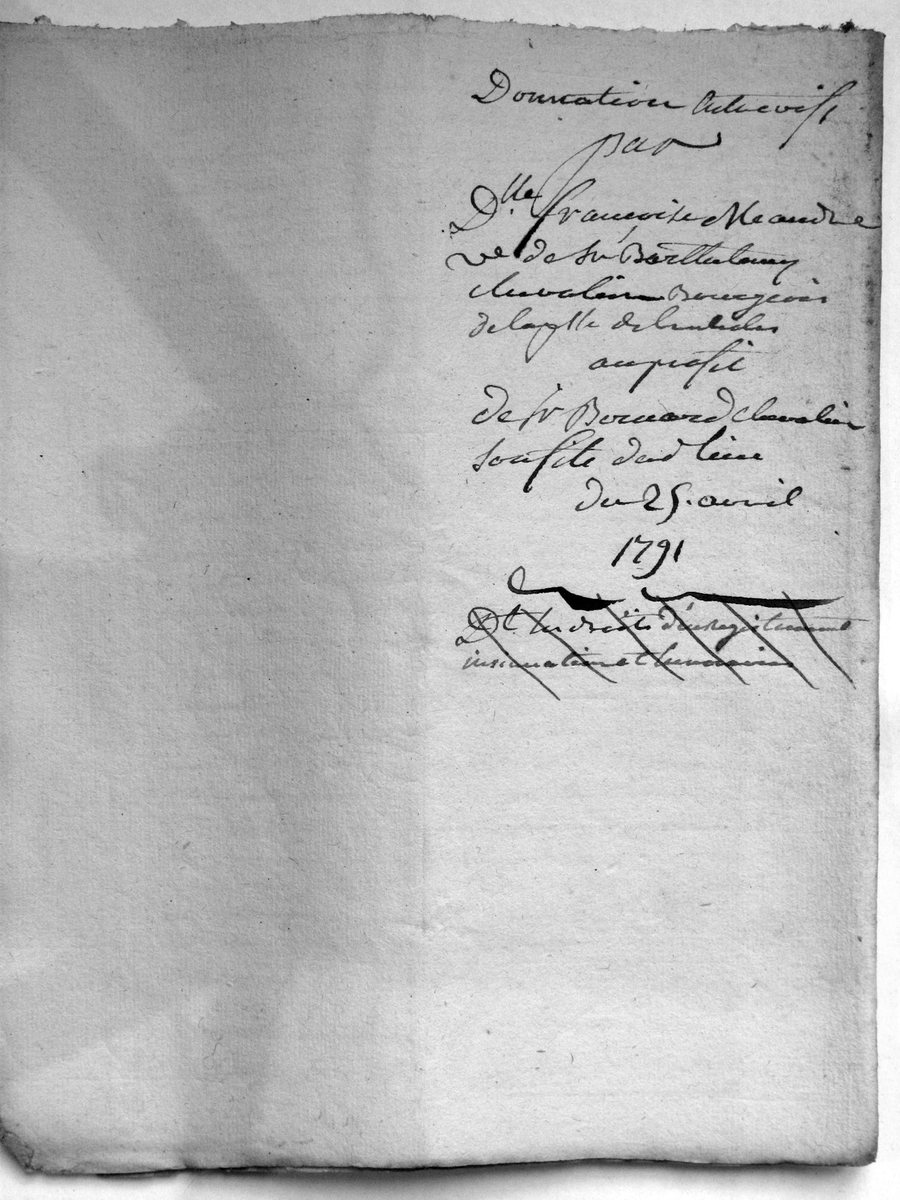 Donnation Entrevifs
par
Dlle françoise Meandre
ve de Sr Barthelemy
chevalier Bourgeois
de la psse de
au profit
de Sr Bernard chevalier
son fils dud lieu
du 25. avril
1791
Dt les droits d'enregistrement
insinuation et honoraires